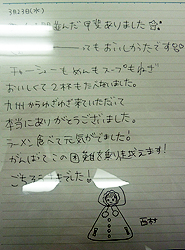 3月23日(水)
並んだ甲斐ありました
ってもおいしかったです
チャーシューもめんもスープもねぎ
おいしくて2杯もたべました。
九州からわざわざ来ていただいて
本当にありがとうございました。
ラーメン食べて元気がでました!
がんばってこの困難を乗り越えます!
ごちそうさまでした!
西村